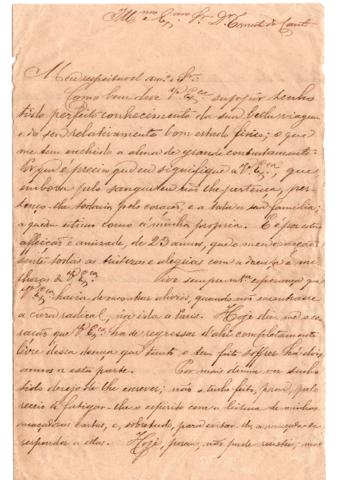 Illmo e Exmo Sr. Dr. Ernesto do Canto
Meu respeitavel amo. e Sr.
Como bem deve V. Exca. suppôr tenho
tido perfeito conhecimento da sua bella viagem
e do seu relativamente bom estado fisico; o que
me tem enchido a alma de grande contentamento.
é preciso que eu signifique a V. Exca. que,
embora pelo sangue eu não lhe pertença, per-
tenço-lhe todavia pelo coração, e a toda a sua familia;
a quem estimo como á minha propria. E por esta
affeição e amizade, de 23 annos, que o meu coração
sente todas as tristezas e alegrias com a doença e me-
lhoras de V. Exca.
Tive sempre esperança que
V. Exca. havia de encontrar alivios, quando não encontrasse
a cura radical, na ida a Paris. Hoje diz-me o co-
ração que V. Exca. ha de regressar d'ahi completamente
livre dessa doença que tanto o tem feito soffrer ha dois
annos a esta parte.
Por mais duma vez tenho
tido desejo de lhe escrever; não o tenho feito, porem, pelo
receio de fatigar-lhe o espirito com a leitura de minhas
maçadoras cartas, e, sobretudo, para evitar-lhe a maçada de
responder a ellas. Hoje, porem, não pude resistir, mas